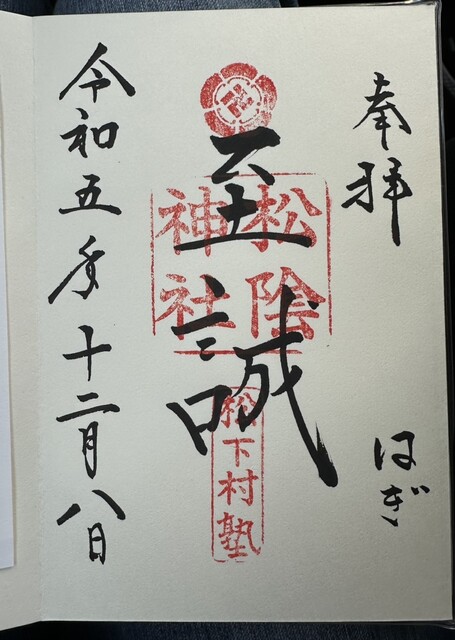 奉拝
はぎ
至誠
松陰
神社
松下村塾
令和五年十二月八日